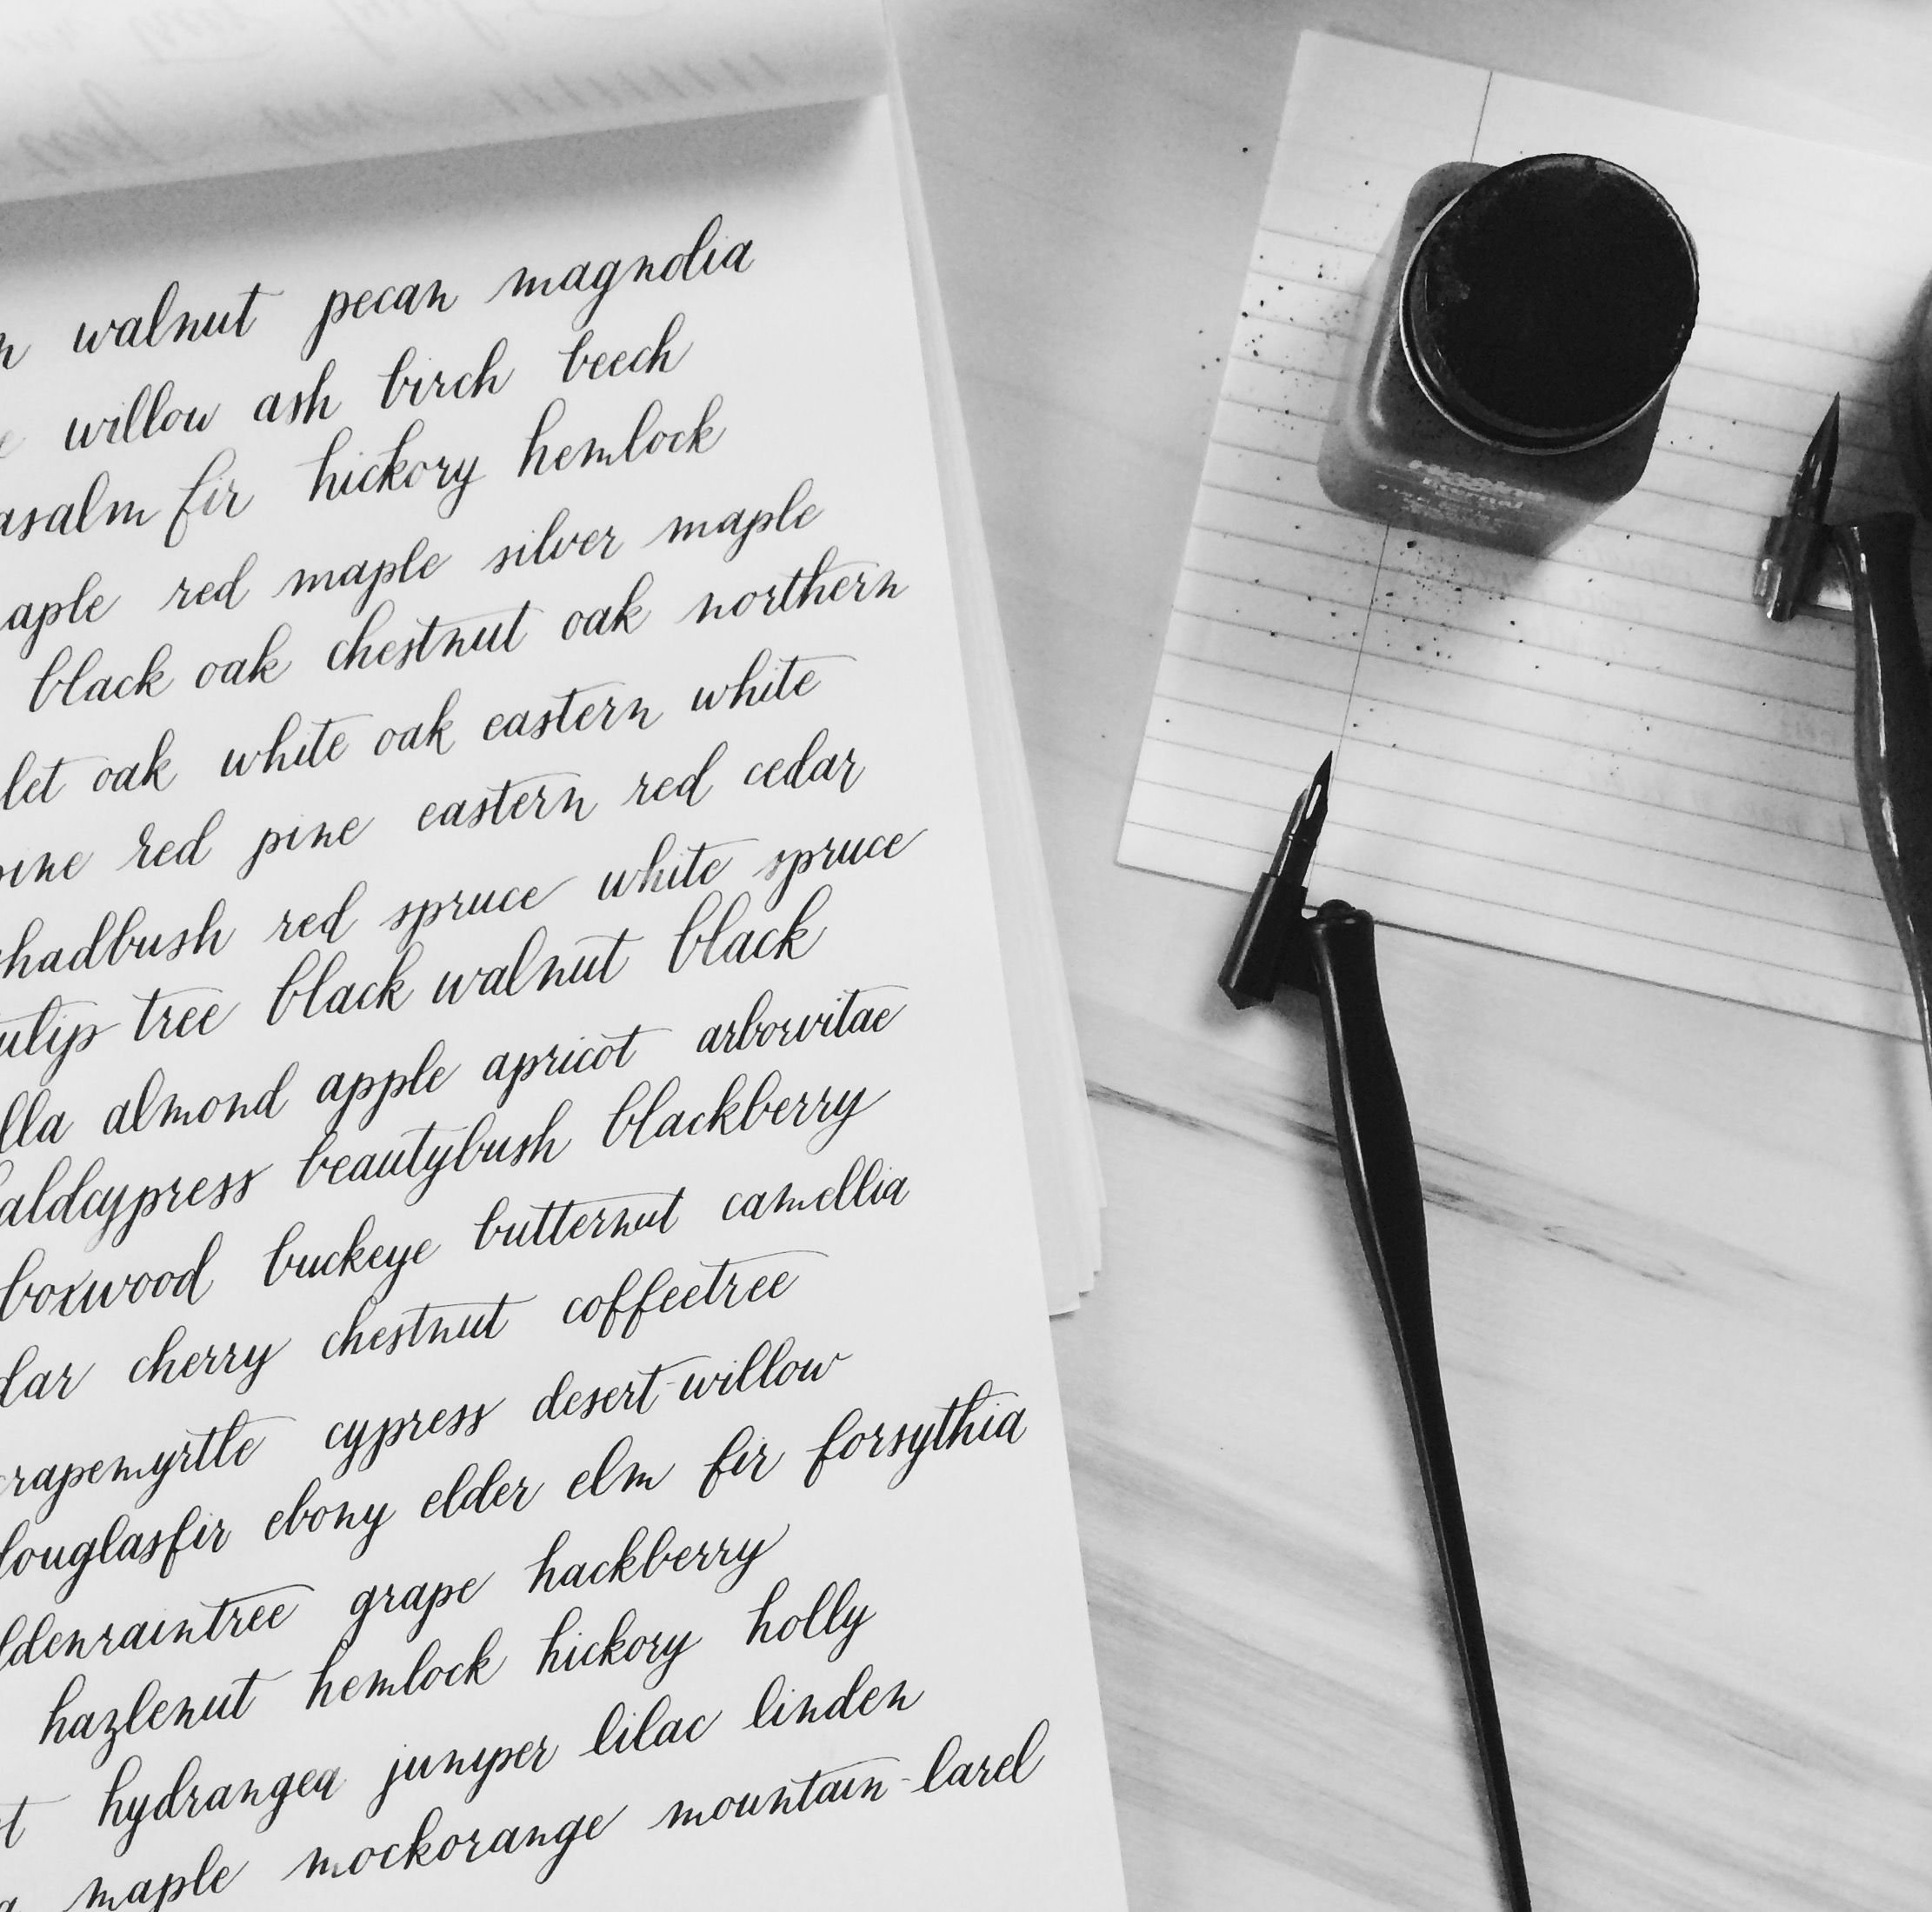 walnut pecan magnolia
willow ash birch beech
asalm fir hickory hemlock
aple red maple silver maple
black oak chestnut oak northern
let oak white oak eastern white
ine red pine eastern red cedar
hadbush red spruce white spruce
ulip tree black walnut black
lla almond apple apricot arborvitae
aldcypress beautybush blackberry
boxwood buckeye butternut camellia
dar cherry chestnut coffeetree
rapemyrtle cypress desert-willow
douglasfir ebony elder elm fir forsythia
ldenraintree grape hackberry
hazlenut hemlock hickory holly
hydrangea juniper lilac linden
maple mockorange mountain-larel
Higgins
Eternal